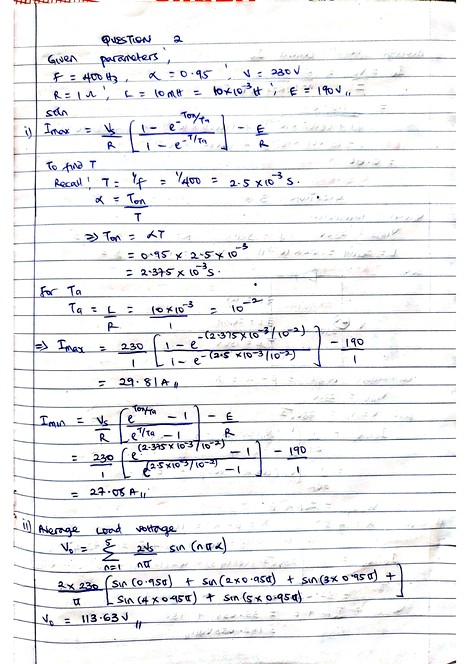 QUESTION 2
Given parameters;
F = 400Hz, α = 0.95 ; V = 230V
R = 1Ω ; L = 10mH = 10×10⁻³H ; E = 190V,,
soln
i) Imax = Vs/R [ (1 - e^-Ton/Ta) / (1 - e^-T/Ta) ] - E/R
To find T
Recall; T = 1/f = 1/400 = 2.5 × 10⁻³ s.
α = Ton/T
⇒ Ton = αT
= 0.95 × 2.5 × 10⁻³
= 2.375 × 10⁻³ s.
For Ta
Ta = L/R = 10×10⁻³/1 = 10⁻²
⇒ Imax = 230/1 [ (1 - e^-(2.375×10⁻³/10⁻²)) / (1 - e^-(2.5×10⁻³/10⁻²)) ] - 190/1
= 29.81A,,
Imin = Vs/R [ (e^Ton/Ta - 1) / (e^T/Ta - 1) ] - E/R
= 230/1 [ (e^(2.375×10⁻³/10⁻²) - 1) / (e^(2.5×10⁻³/10⁻²) - 1) ] - 190/1
= 27.08A,,
ii) Average Load voltage
Vo = 5 Σ n=1 2Vs/nπ sin (nπα)
2×230/π [ sin (0.95π) + sin (2×0.95π) + sin (3×0.95π) +
sin (4×0.95π) + sin (5×0.95π) ]
Vo = 113.63V,,